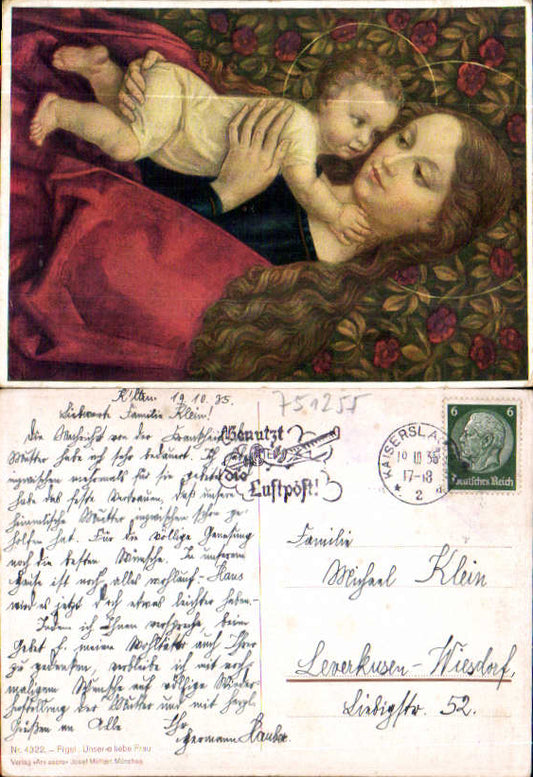 K'ltrn. 19.10.35.
751255
Liebwerte Familie Klein!
Die Nachricht von der Krankheit
Mutter habe ich sehr bedauert. Ich
inzwischen mehrmals für sie gebetet
habe das feste Vertrauen, daß unsere
himmlische Mutter inzwischen schon ge-
holfen hat. Für die völlige Genesung
noch die besten Wünsche. In unserem
Hause ist noch alles wohlauf. - Hans
wird es jetzt doch etwas leichter haben. -
Indem ich Ihnen verspreche, beim
Gebet f. meine Wohltäter auch Ihrer
zu gedenken, verbleibe ich mit noch-
maligem Wunsche auf völlige Wieder-
herstellung der Mutter und mit herzl.
Grüßen an Alle Ihr
Hermann
Nr. 4322. – Figel: Unsere liebe Frau
Verlag »Ars sacra« Josef Müller, München
Benutzt
die
Luftpost!
KAISERSLA
17-18
2 d
6 6
Deutsches Reich
Familie
Michael Klein
Leverkusen-Wiesdorf,
Liebigstr. 52.